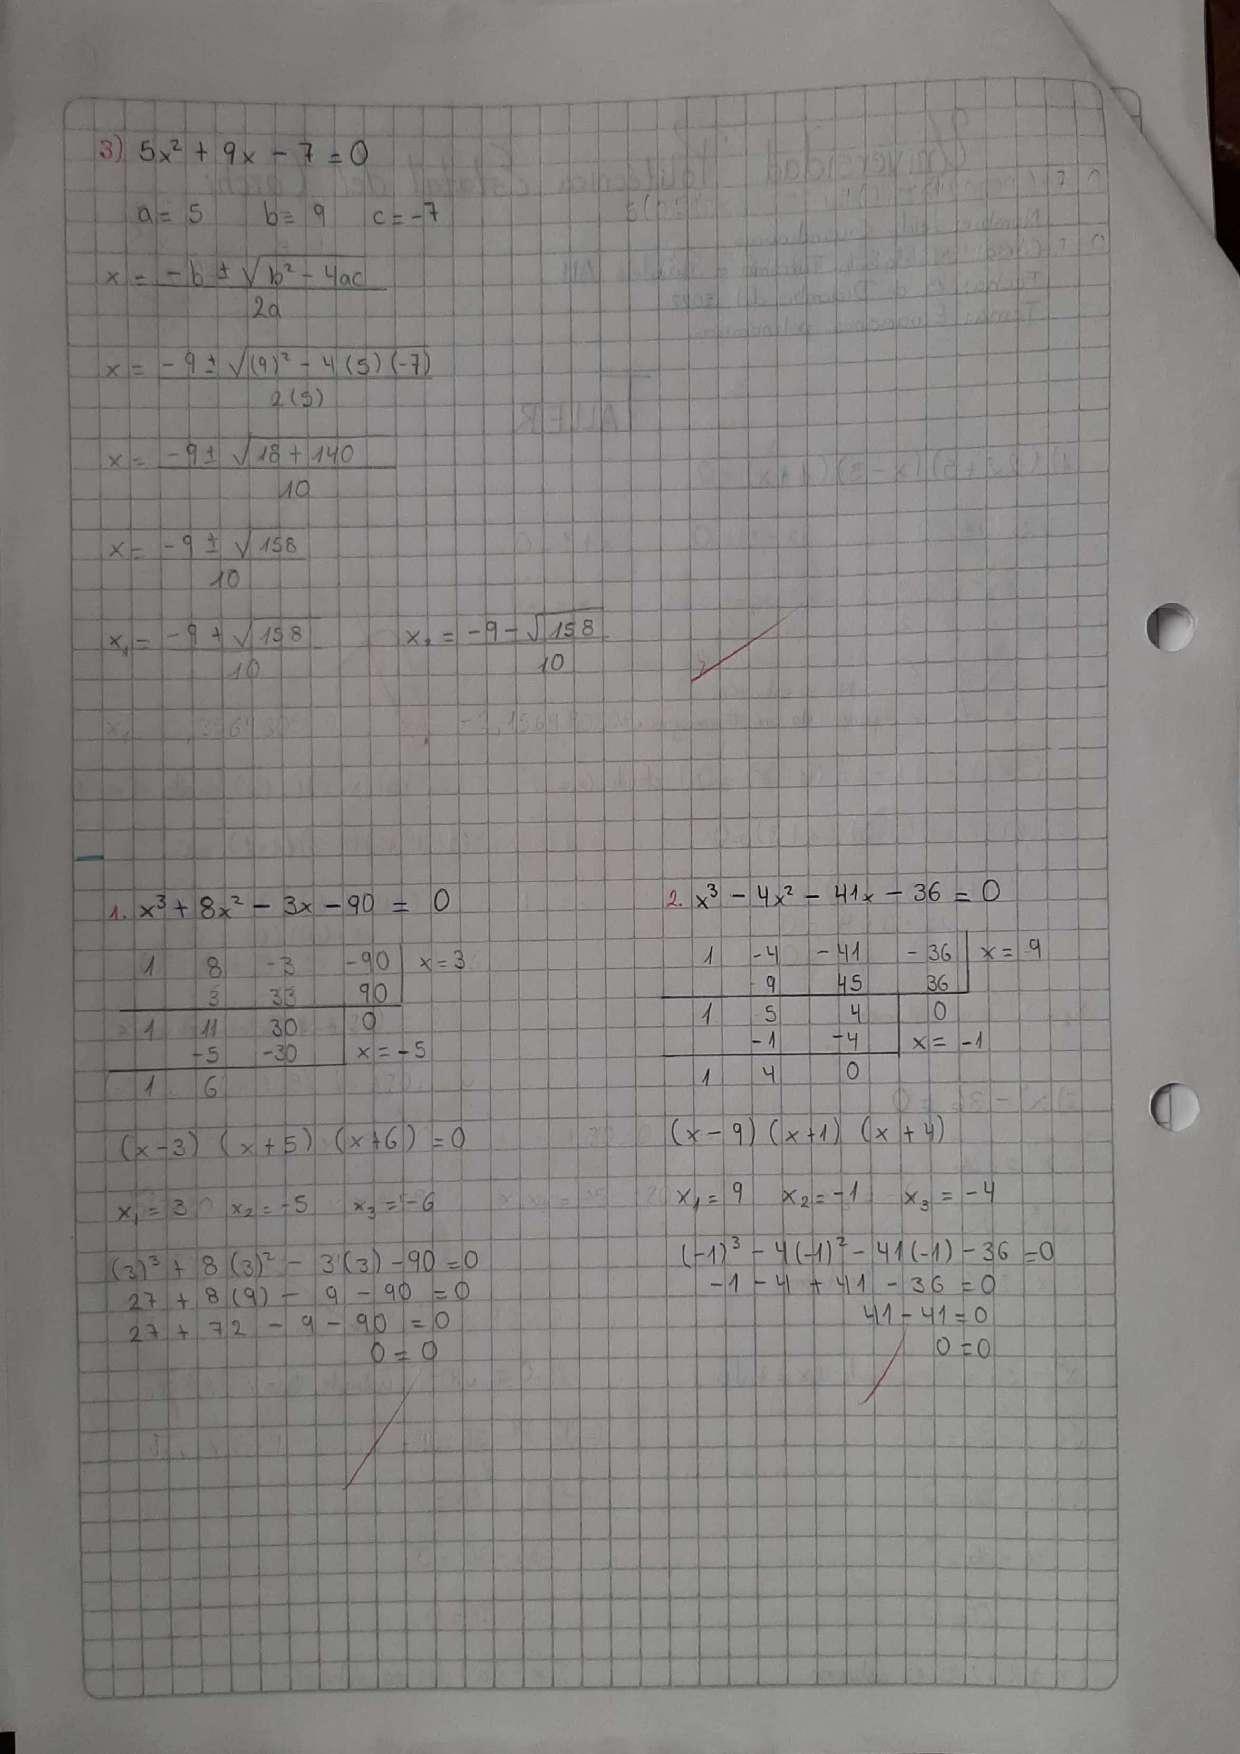 3) 5x² + 9x - 7 = 0
a = 5 b = 9 c = -7
x = -b ± √b² - 4ac
2a
x = -9 ± √(9)² - 4(5)(-7)
2(5)
x = -9 ± √18 + 140
10
x = -9 ± √158
10
x₁ = -9 + √158 x₂ = -9 - √158
10 10
1. x³ + 8x² - 3x - 90 = 0
1 8 -3 -90 x = 3
3 33 90
1 11 30 0
-5 -30 x = -5
1 6
(x-3) (x+5) (x+6) = 0
x₁ = 3 x₂ = -5 x₃ = -6
(3)³ + 8(3)² - 3(3) - 90 = 0
27 + 8(9) - 9 - 90 = 0
27 + 72 - 9 - 90 = 0
0 = 0
2. x³ - 4x² - 41x - 36 = 0
1 -4 -41 -36 x = 9
9 45 36
1 5 4 0
-1 -4 x = -1
1 4 0
(x-9) (x+1) (x+4)
x₁ = 9 x₂ = -1 x₃ = -4
(-1)³ - 4(-1)² - 41(-1) - 36 = 0
-1 - 4 + 41 - 36 = 0
41 - 41 = 0
0 = 0